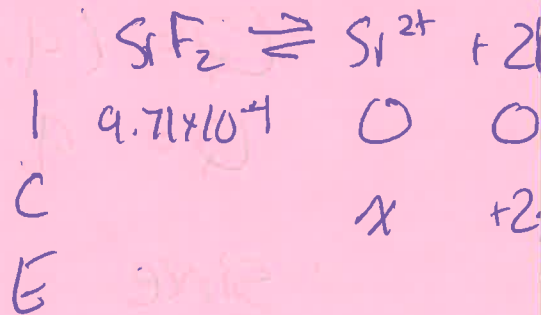 SrF₂ ⇌ Sr²⁺ + 2
I 9.71x10⁻⁴ 0 0
C x +2
E